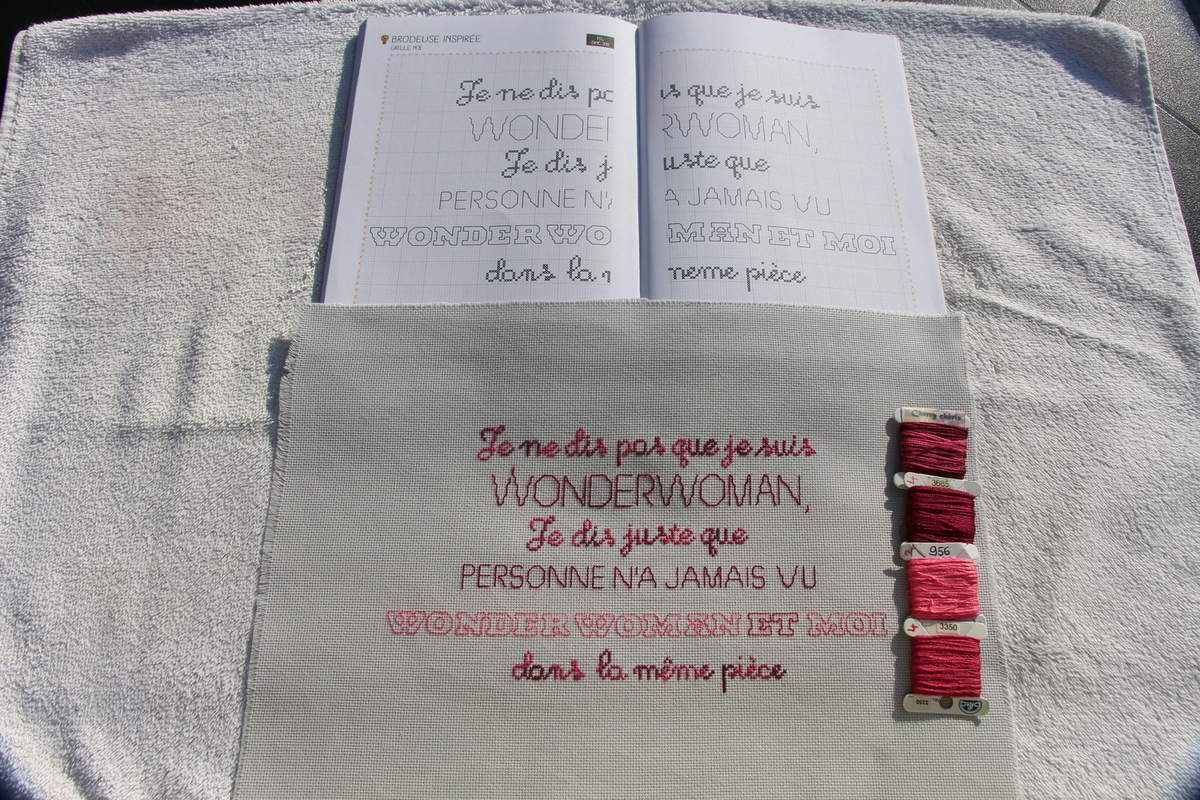 BRODEUSE INSPIRÉE
Je ne dis pas que je suis
WONDERWOMAN,
Je dis juste que
PERSONNE N'A JAMAIS VU
WONDER WOMAN ET MOI
dans la meme pièce
Je ne dis pas que je suis
WONDERWOMAN,
Je dis juste que
PERSONNE N'A JAMAIS VU
WONDER WOMAN ET MOI
dans la même pièce
3685
956
3350
DMC